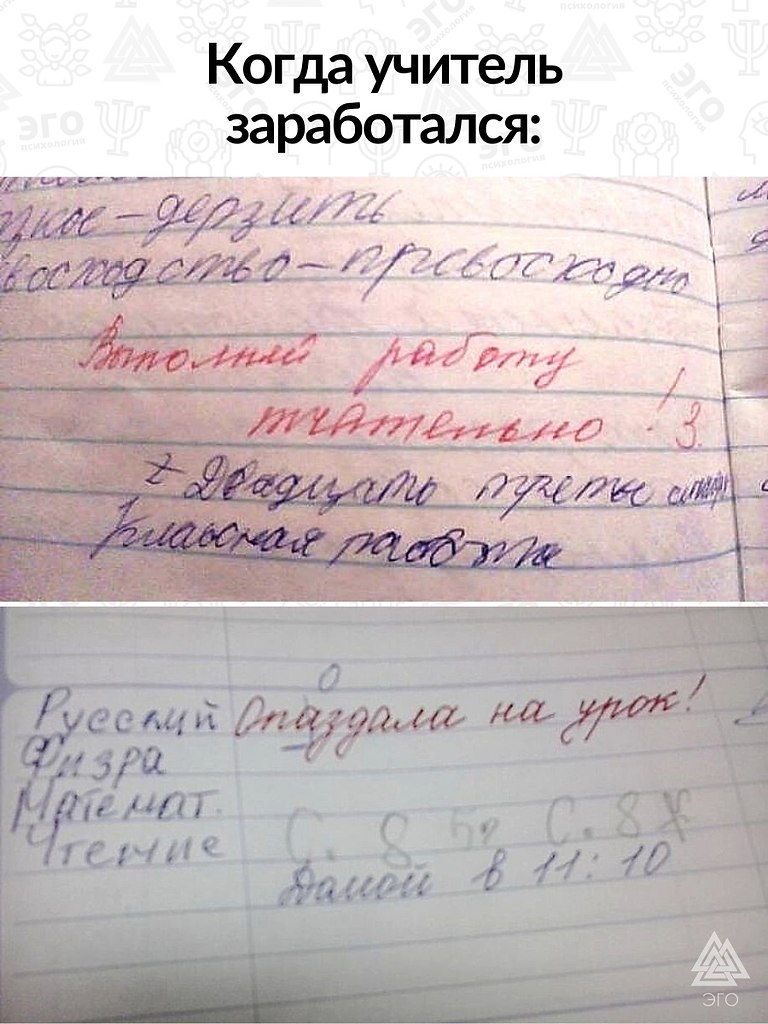 Когда учитель
заработался:
зкое – дерзить
восходство – превосходно
Выполняй работу
тчательно! 3.
Двадцать третье
Классная работа
о
Русский Опаздала на урок!
Физра
Математ.
Чтение С. 8 С. 8
Дамой в 11:10
ЭГО